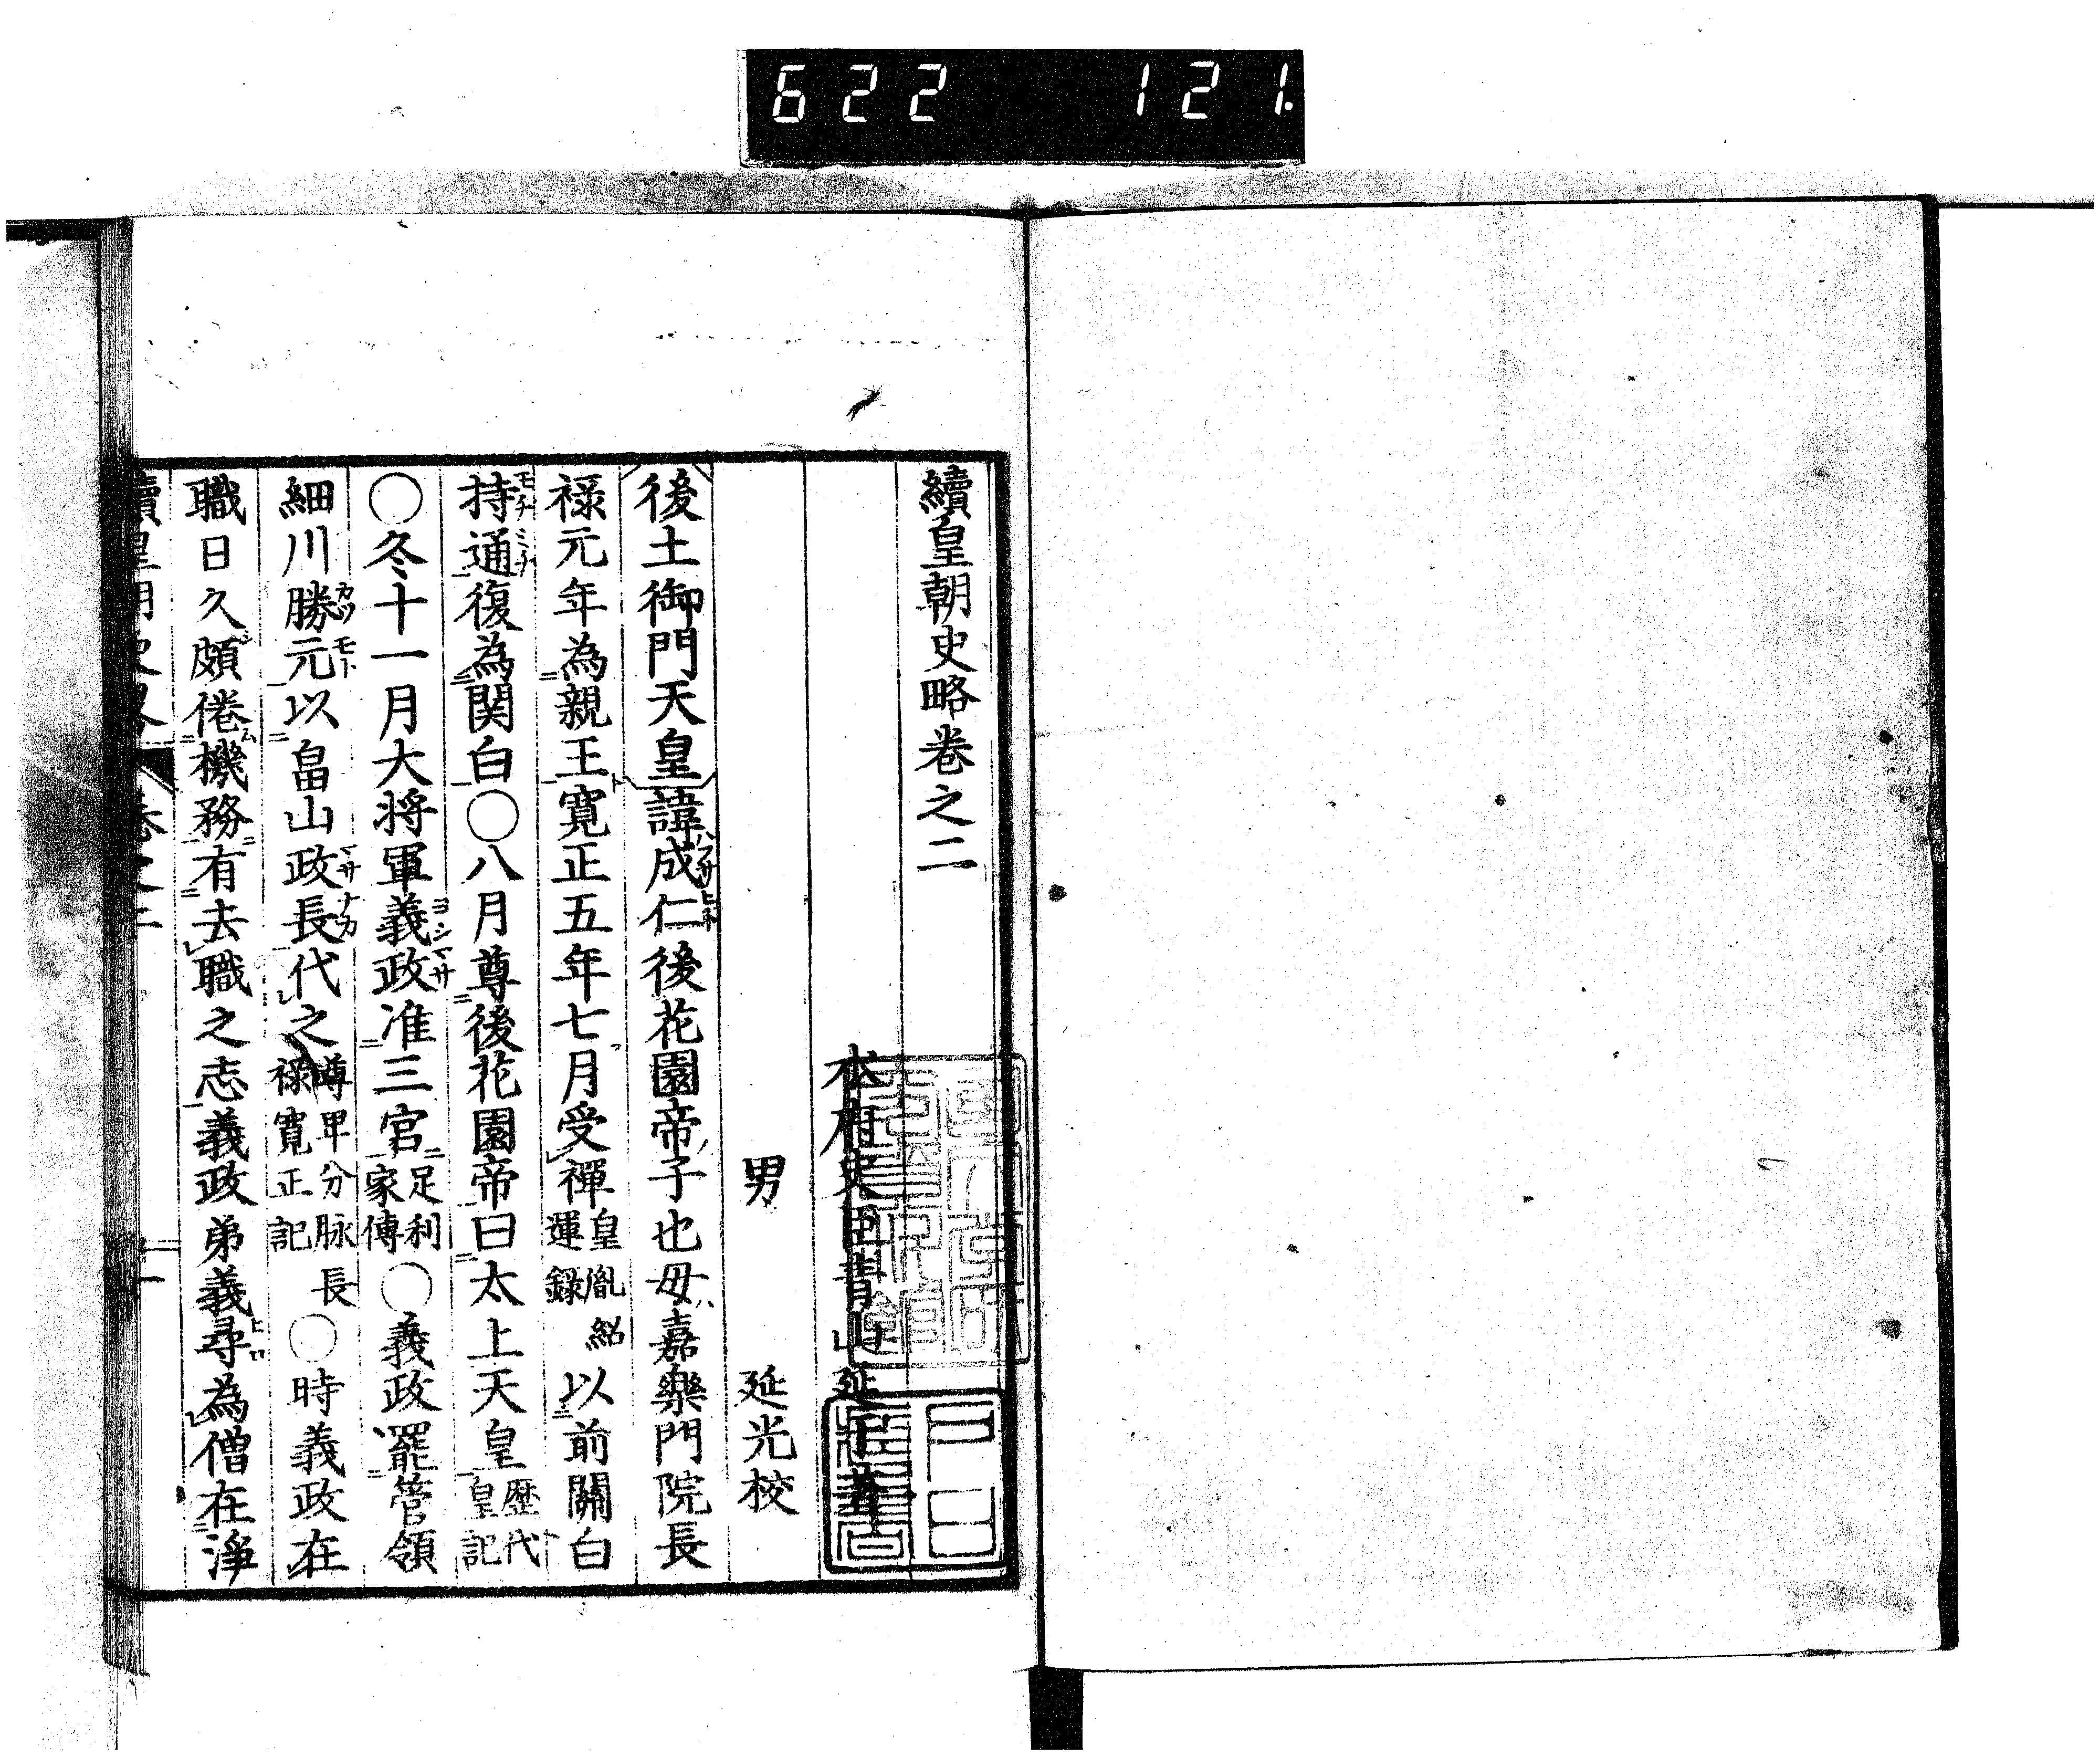 622 121.
續皇朝史略卷之二
水府史臣青山延于著
男 延光校
後土御門天皇諱成仁後花園帝子也母嘉樂門院長
禄元年為親王寛正五年七月受禪皇胤紹運錄以前關白
持通復為関白〇八月尊後花園帝曰太上天皇歷代皇記
〇冬十一月大将軍義政准三宮足利家傳〇義政罷管領
細川勝元以畠山政長代之尊卑分脉長禄寛正記〇時義政在
職日久頗倦機務有去職之志義政弟義尋為僧在淨